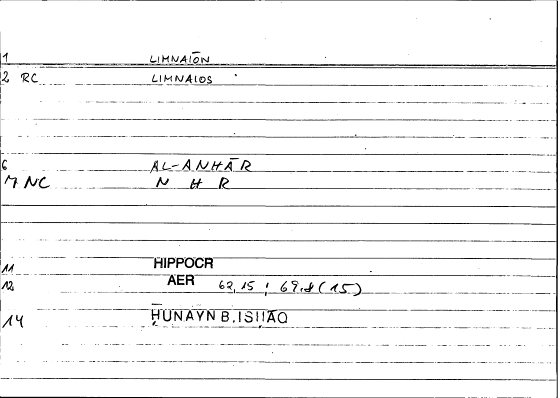 1 LIMNAĪŌN
2 RC LIMNAIOS
6 AL-ANHĀR
7 NC N H R
11 HIPPOCR
12 AER 62,15 ; 69,8 (15)
14 ḤUNAYN B. ISḤĀQ